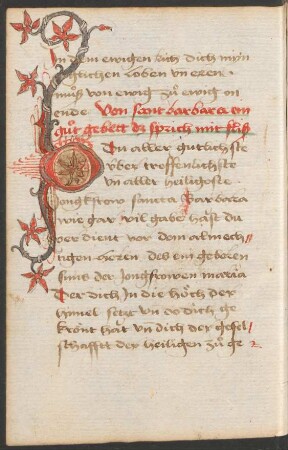 In dem ewigen lieb dich min
glichen loben vn eren
mus von ewig zů ewig on
ende Von sant barbara ein
gůt gebett dz sprich mit fliß
Du aller gutlichste
vber treffenlichste
vn aller heiligoste
Jungkfrow sancta Barbara
wie gar vil gabe hast du
ver dient vor dom almech
tigen herren des ein geboren
suns der Jungfrowen maria
Der dich In die höch der
himel setzt vn do dich ge
krönt hat vn dich der gesel
schafft der heiligen zů ge